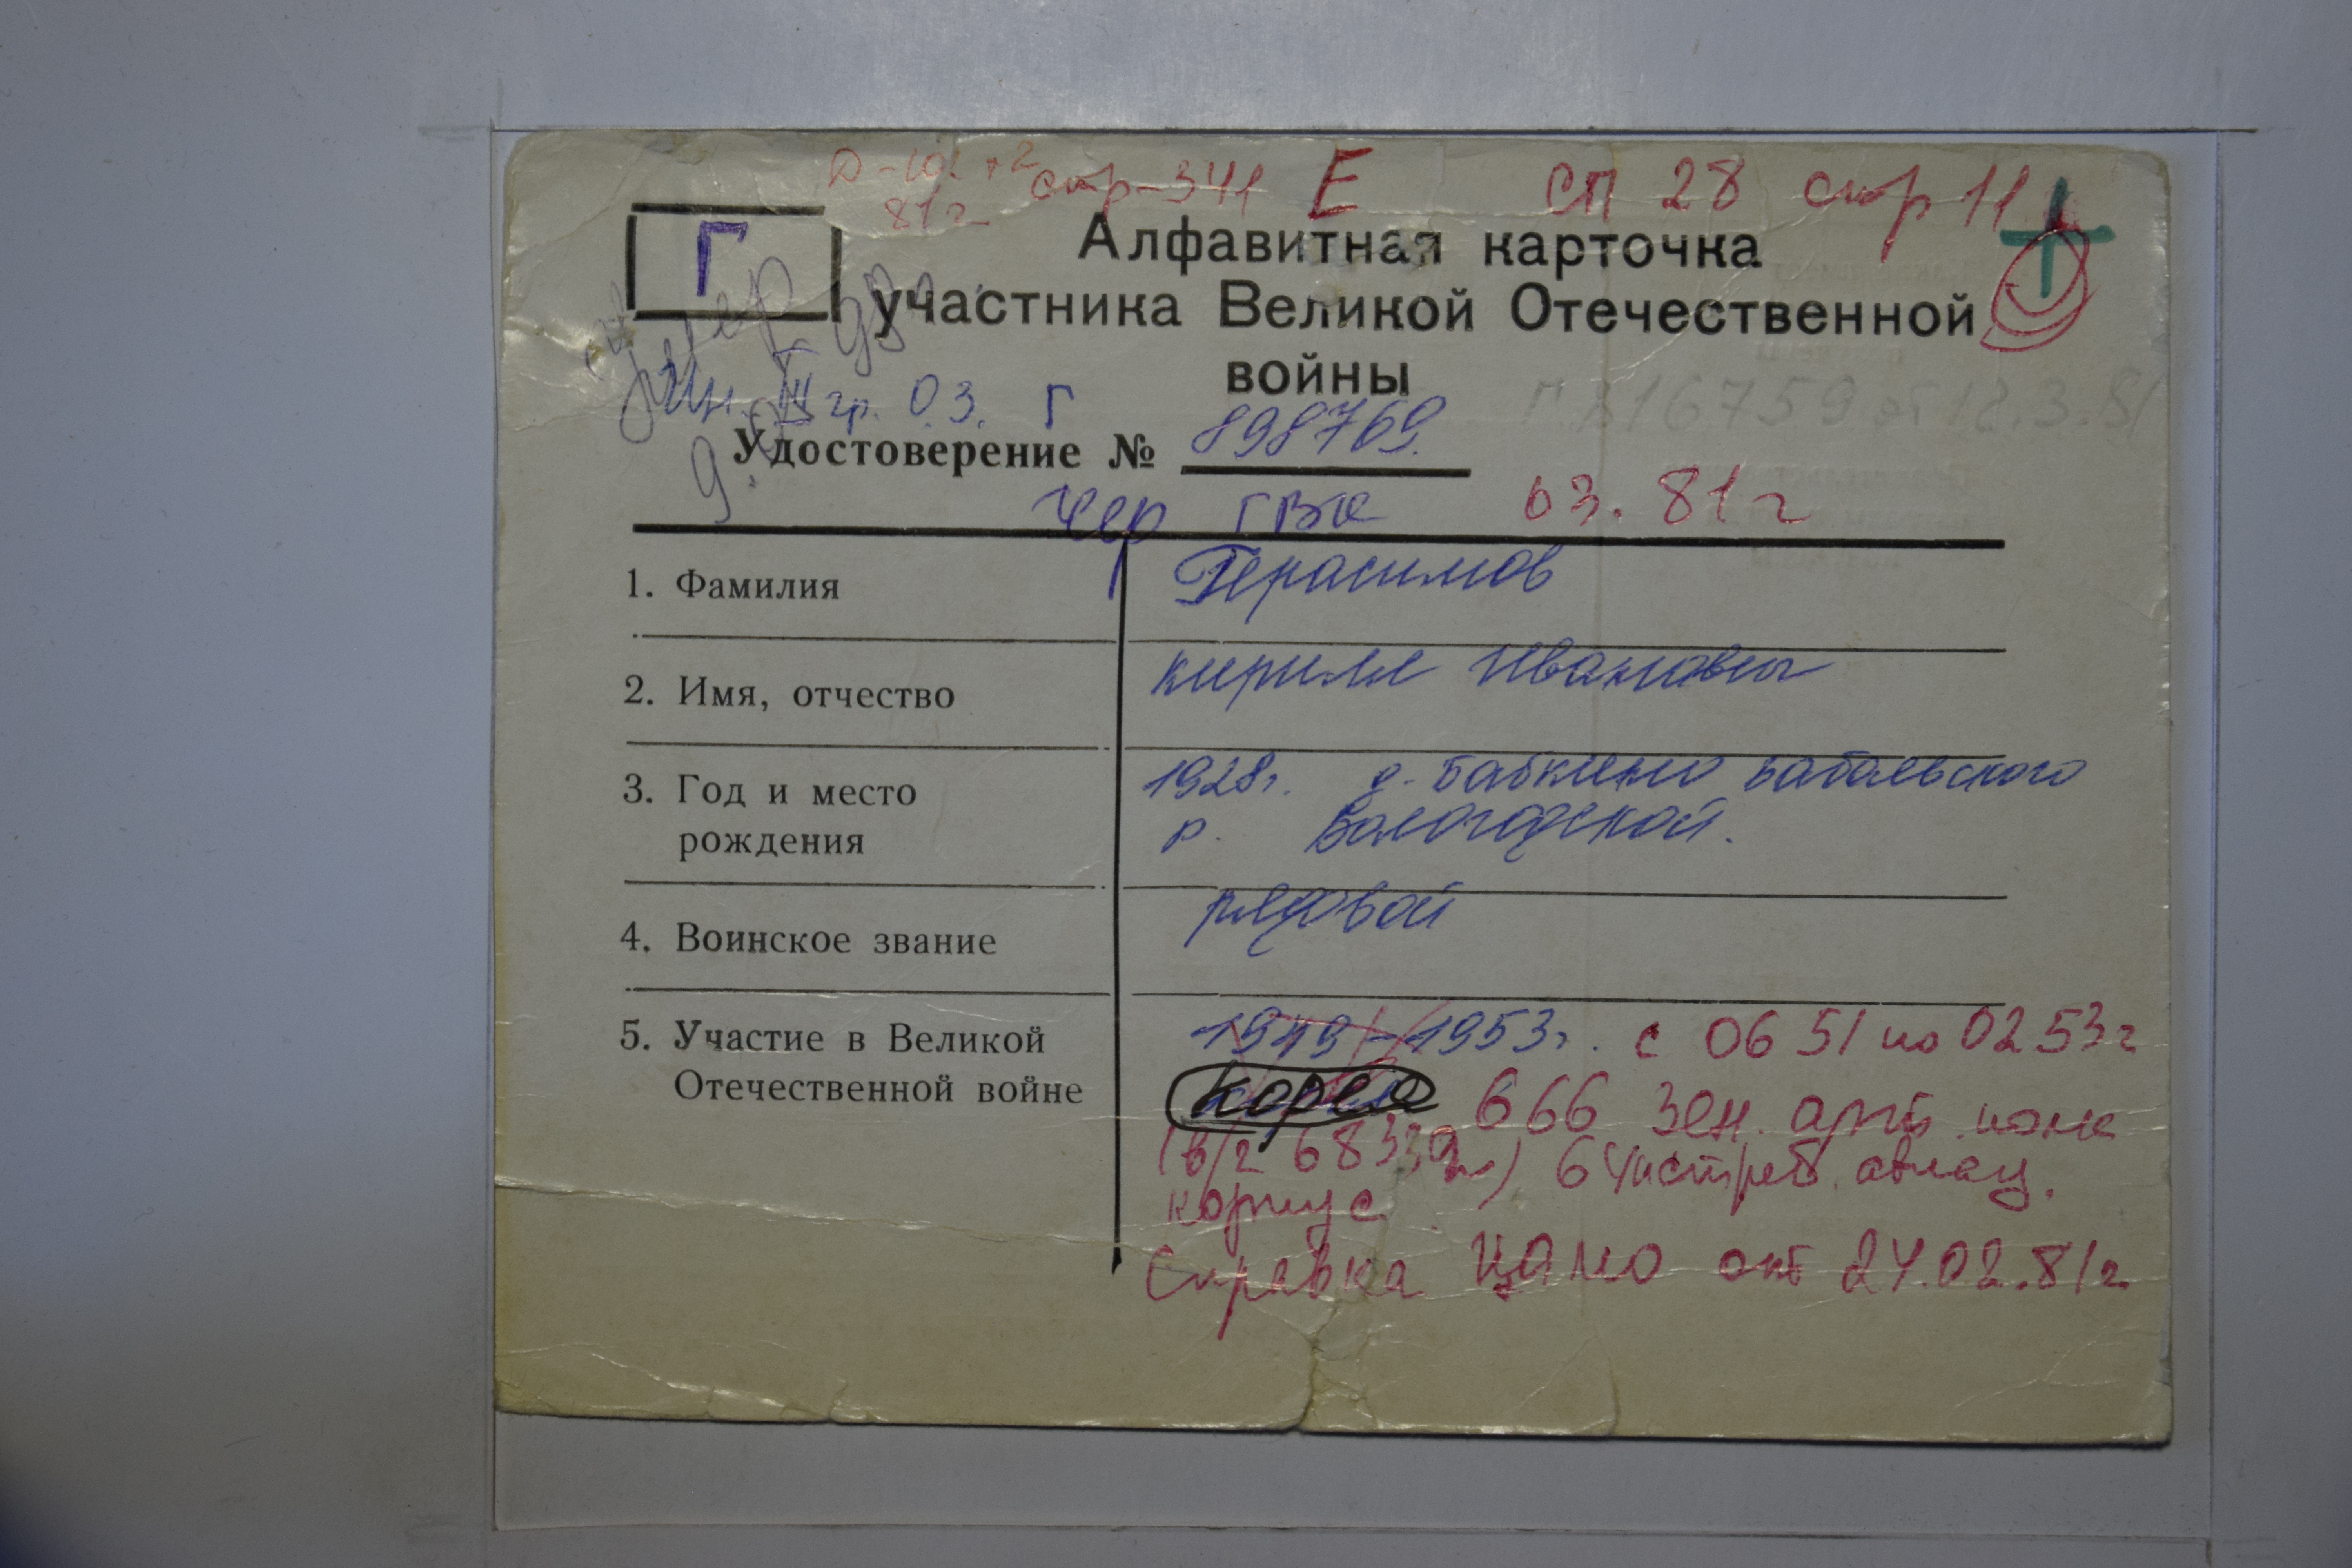 стр-341 Е СП 28 стр 11
81г
Г
Алфавитная карточка
участника Великой Отечественной
войны
умер
Ин. III гр. 03. Г
816759 от 12.3.81
Удостоверение № 898769.
Чер ГВК 03.81г
1. Фамилия Герасимов
2. Имя, отчество Кирилл Иванович
3. Год и место 1928г. д. Бабкино
рождения р. Вологодской.
4. Воинское звание рядовой
5. Участие в Великой 1949-1953г. с 06 51 по 02 53г
Отечественной войне Корея 666 зен. арт. полк
64 истреб. авиац.
корпус
Справка ЦАМО от 24.02.81г